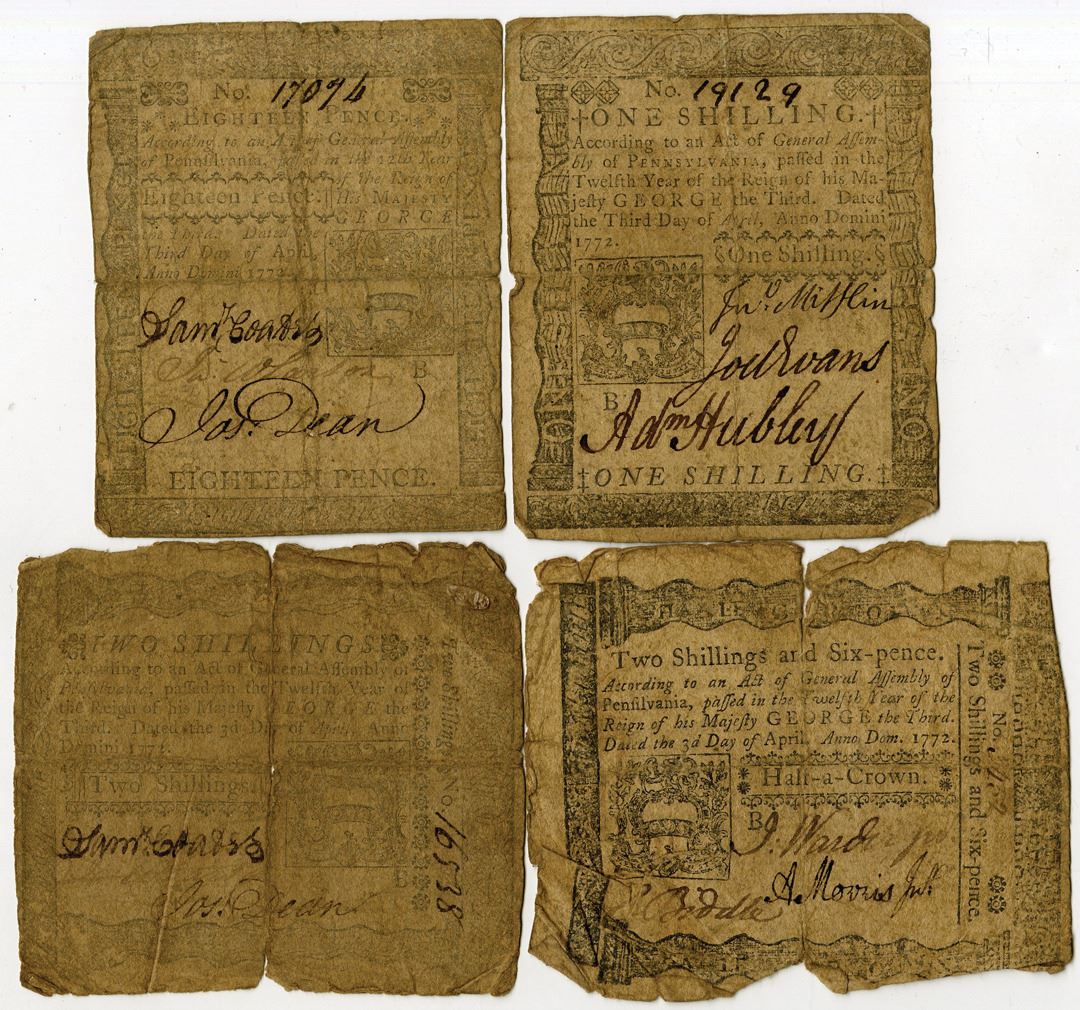 No. 17094
EIGHTEEN PENCE.
According to an Act of General Assembly
of Pennsilvania, passed in the 12th Year
of the Reign of
Eighteen Pence.
His MAJESTY
GEORGE
the Third. Dated
Third Day of April,
Anno Domini 1772.
Saml. Coates
B
Jos. Dean
EIGHTEEN PENCE.
No. 19129
‡ONE SHILLING.‡
According to an Act of General Assem-
bly of PENNSYLVANIA, passed in the
Twelfth Year of the Reign of his Ma-
jesty GEORGE the Third. Dated
the Third Day of April, Anno Domini
1772.
One Shilling.
Jno. Mifflin
Joel Evans
B
Adm Hubley
‡ONE SHILLING.‡
TWO SHILLINGS
According to an Act of General Assembly of
Pensylvania, passed in the Twelfth Year of
the Reign of his Majesty GEORGE the
Third. Dated the 3d Day of April Anno
Domini 1772.
Two Shillings
Saml. Coates
B
Jos. Dean
Two Shillings
No. 16538
Two Shillings and Six-pence.
According to an Act of General Assembly of
Pensilvania, passed in the Twelfth Year of the
Reign of his Majesty GEORGE the Third.
Dated the 3d Day of April, Anno Dom. 1772.
Half-a-Crown.
B
J. Warder
A. Morris Junr.
Biddle
Two Shillings and Six-pence.
No.